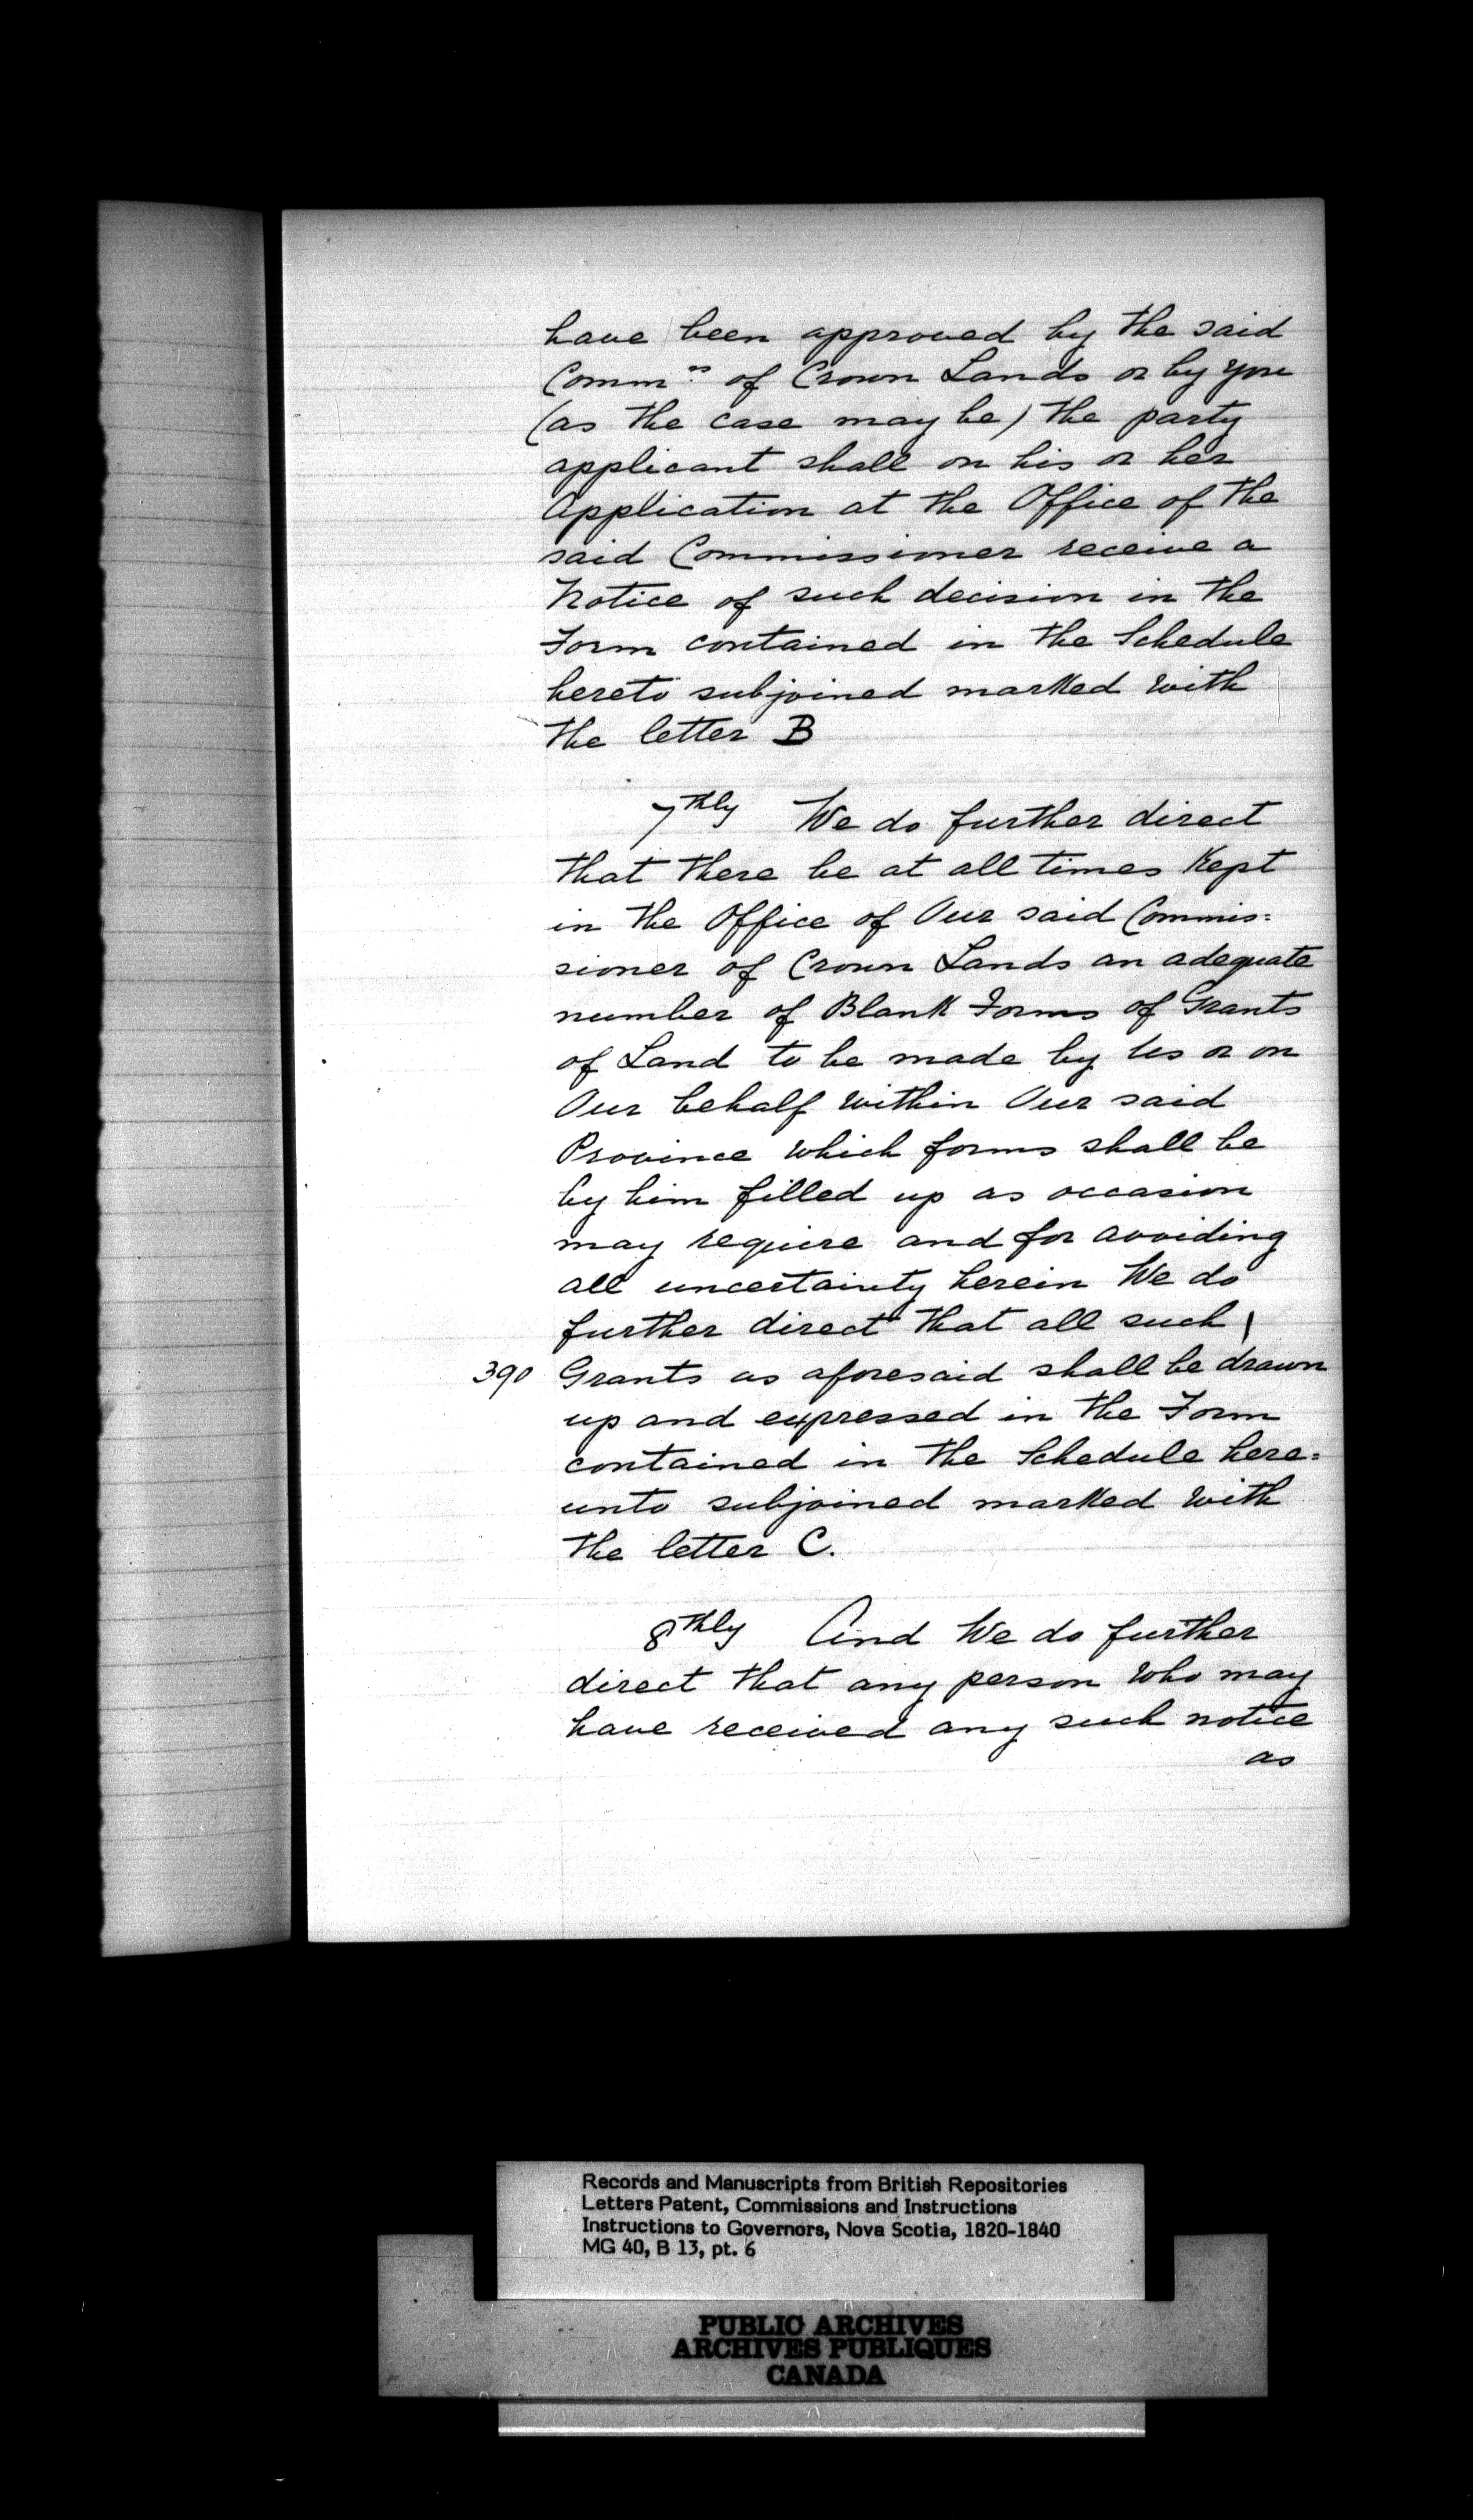 have been approved by the said
Comm.rs of Crown Lands or by you
(as the case may be) the party
applicant shall on his or her
Application at the Office of the
said Commissioner receive a
Notice of such decision in the
Form contained in the Schedule
hereto subjoined marked with
the letter B
7thly We do further direct
that there be at all times Kept
in the Office of Our said Commis=
sioner of Crown Lands an adequate
number of Blank Forms of Grants
of Land to be made by Us or on
Our behalf within Our said
Province which forms shall be
by him filled up as occasion
may require and for avoiding
all uncertainty herein We do
further direct that all such \
390 Grants as aforesaid shall be drawn
up and expressed in the Form
contained in the Schedule here=
unto subjoined marked with
the letter C.
8thly And We do further
direct that any person who may
have received any such notice
as
Records and Manuscripts from British Repositories
Letters Patent, Commissions and Instructions
Instructions to Governors, Nova Scotia, 1820-1840
MG 40, B 13, pt. 6
PUBLIC ARCHIVES
ARCHIVES PUBLIQUES
CANADA